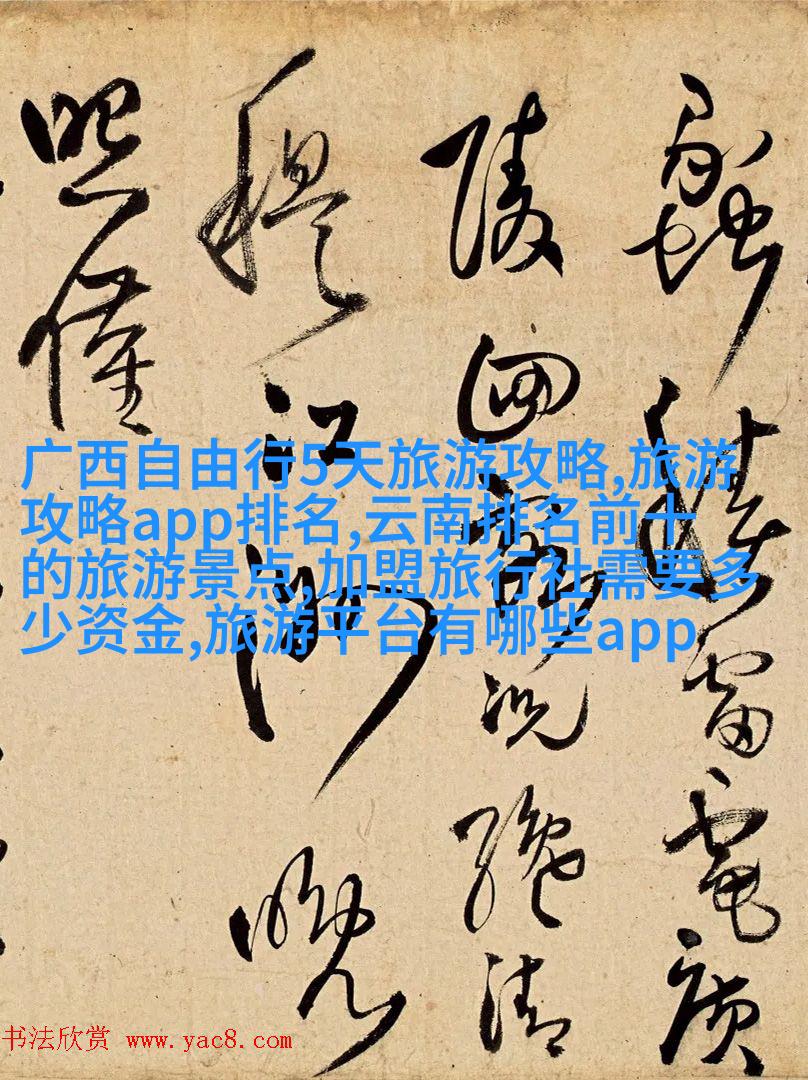 雷電廣
陵四況絶清
江湖晚
照僅
广西自由行5天旅游攻略,旅游
攻略app排名,云南排名前十
的旅游景点,加盟旅行社需要多
少资金,旅游平台有哪些app
书法欣赏 www.yac8.com